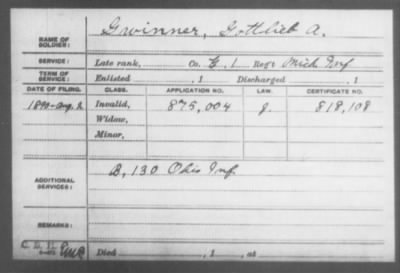 NAME OF SOLDIER: Gwinner, Gottlieb A.
SERVICE: Late rank, Co. E, 1 Reg't Mich Inf
TERM OF SERVICE: Enlisted , 1 Discharged , 1
DATE OF FILING. CLASS. APPLICATION NO. LAW. CERTIFICATE NO.
1890-Aug. Invalid, 875,004 J. 818,108
Widow,
Minor,
ADDITIONAL SERVICES: B, 130 Ohio Inf
REMARKS:
Died , 1 , at